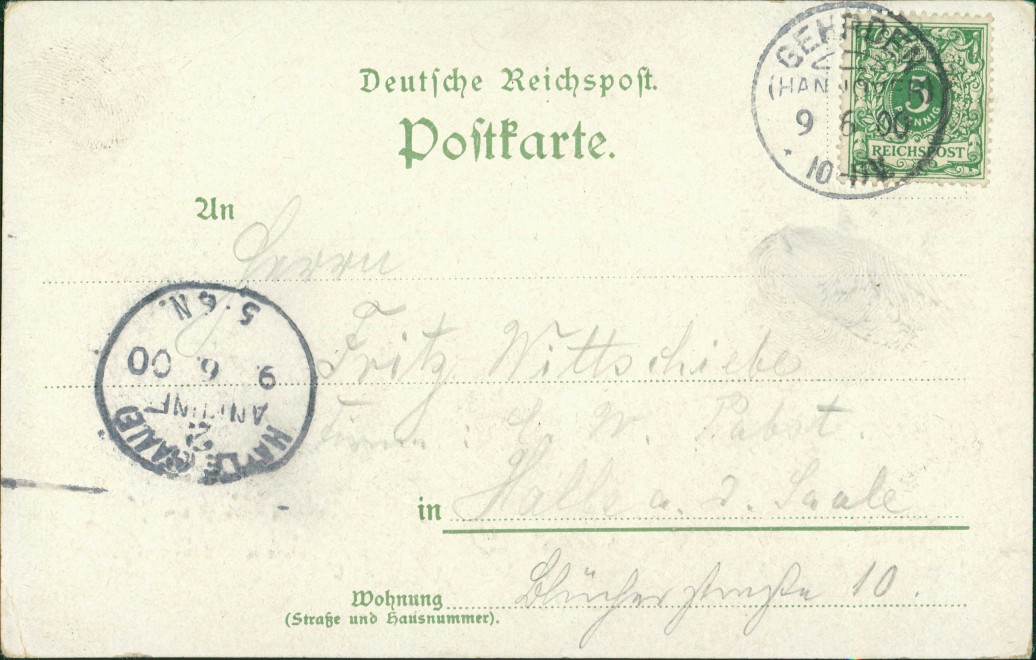 Deutsche Reichspost.
Postkarte.
GEHRDEN
(HANNOVER)
9 6 00
10-11V.
5
PFENNIG
REICHSPOST
An
Herrn
Fritz Wittschiebe
Firma: C. W. Pabst.
in Halle a. d. Saale
Wohnung Blücherstraße 10.
(Straße und Hausnummer).
5-6N.
9. 6. 00
ANKUNFT
2
HALLE (SAALE)